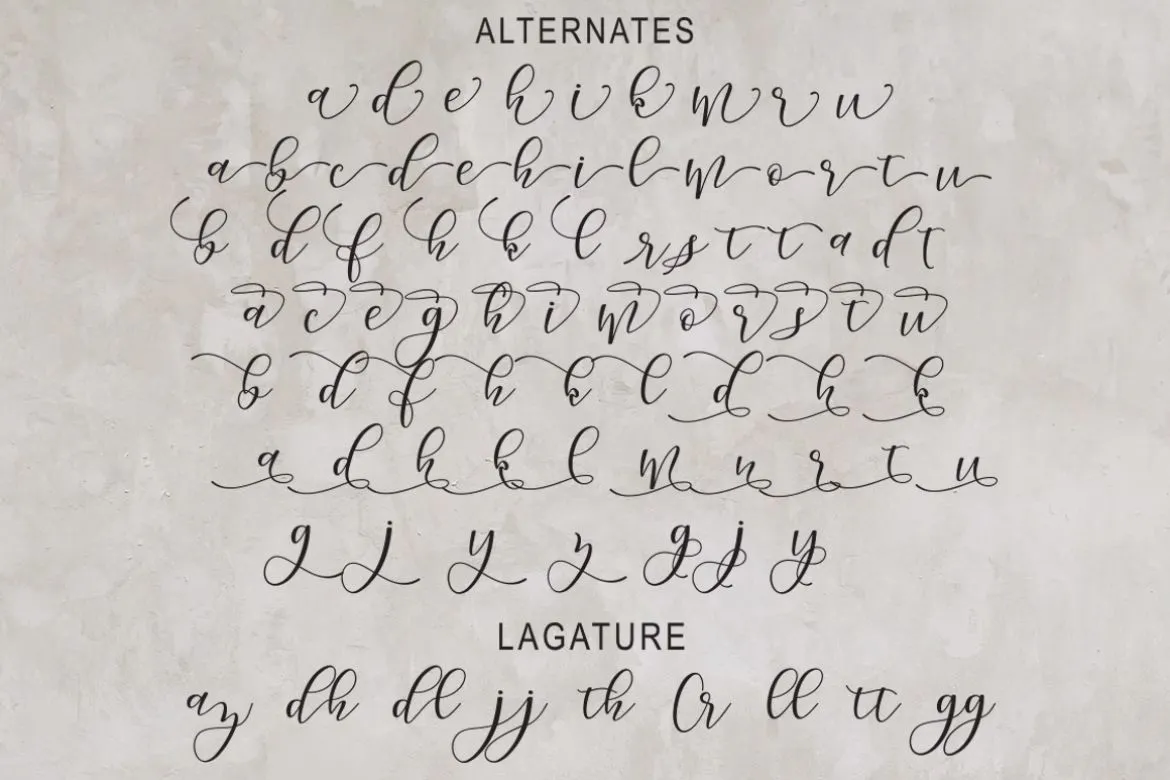 ALTERNATES
a d e h i k m r u
a b c d e h i l m o r t u
b d f h k l r s t t a d t
a c e g h i m o r s t u
b d f h k l d h k
a d h k l m n r t u
g j y z g j y
LAGATURE
az dh dl jj th Or ll tt gg